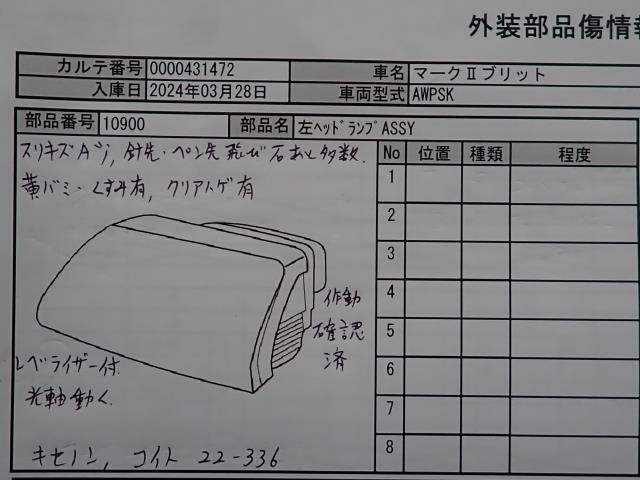 外装部品傷情報
カルテ番号 0000431472 車名 マークⅡブリット
入庫日 2024年03月28日 車両型式 AWPSK
部品番号 10900 部品名 左ﾍｯﾄﾞﾗﾝﾌﾟASSY
スリキズ 針先・ペン先飛び石あと多数.
黄バミ・くすみ有, クリアトゲ有
No 位置 種類 程度
1
2
3
4
5
6
7
8
作動
確認
済
レベライザー付.
光軸動く.
キセノン, コイト 22-336